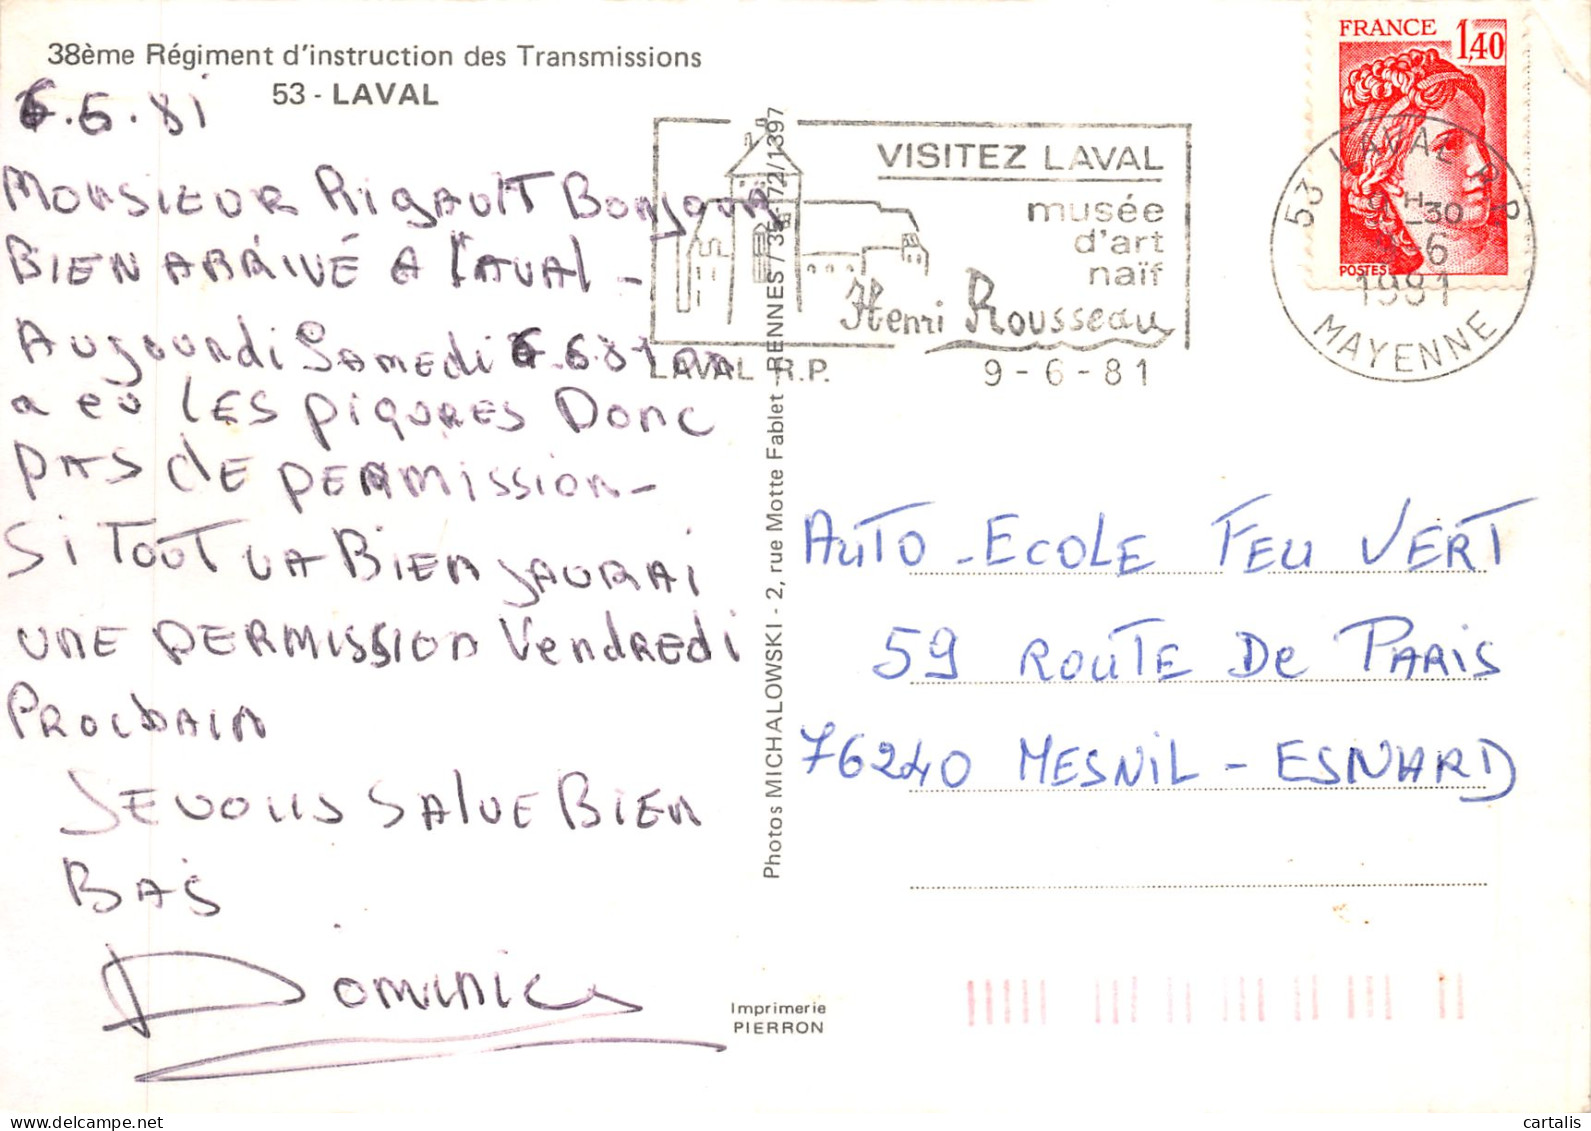 38ème Régiment d'instruction des Transmissions
53 - LAVAL
6.6.81
MONSIEUR RIGAULT BONJOUR
BIEN ARRIVÉ A LAVAL -
AUJOURDI SAMEDI 6.6.81 ON
a eu LES PIQURES DONC
PAS de PERMISSION -
SI TOUT VA BIEN JAURAI
UNE PERMISSION VENDREDI
PROCHAIN
JE VOUS SALUE BIEN
BAS
DOMINIC
VISITEZ LAVAL
musée
d'art
naïf
Henri Rousseau
LAVAL R.P.
9-6-81
FRANCE
1,40
POSTES
53 LAVAL R.P.
H-30
-6
1981
MAYENNE
Photos MICHALOWSKI - 2, rue Motte Fablet - RENNES / 35-172/1397
AUTO-ECOLE FEU VERT
59 ROUTE De PARIS
76240 MESNIL - ESNARD
Imprimerie
PIERRON
cartalis